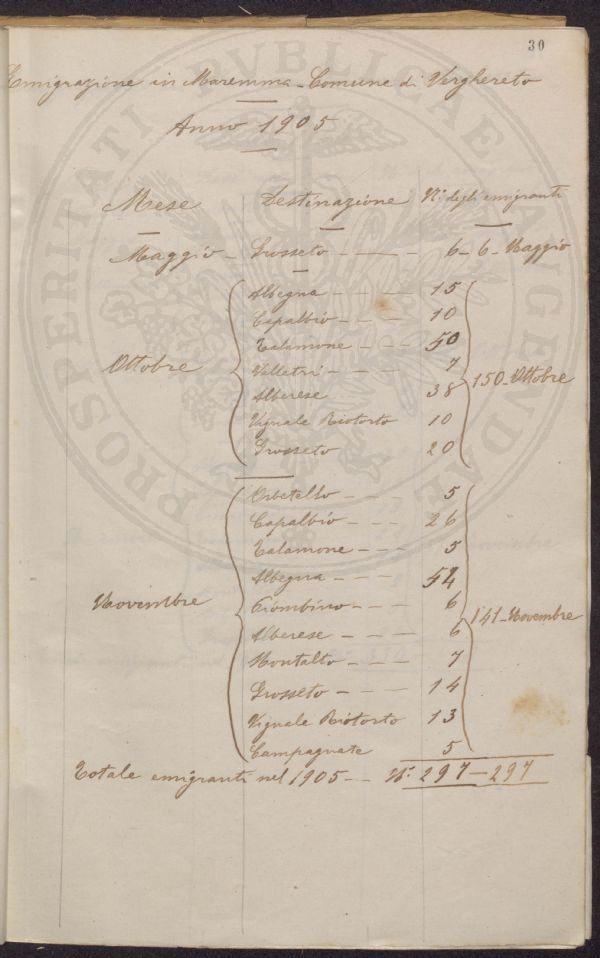 30
Emigrazione in Maremma - Comune di Verghereto
Anno 1905
Mese Destinazione N. degli emigranti
Maggio - Grosseto - - - 6 - 6 - Maggio
Albegna - - - 15
Capalbio - - - 10
Talamone - - - 50
Ottobre Velletri - - - 7
Alberese 38 150 - Ottobre
Vignale Riotorto 10
Grosseto 20
Orbetello - - - 5
Capalbio - - - 26
Talamone - - - 5
Albegna - - - 54
Novembre Piombino - - - 6
Alberese - - - 6 141 - Novembre
Montalto - - - 7
Grosseto - - - 14
Vignale Riotorto 13
Campagnate 5
Totale emigranti nel 1905 - - N. 297 - 297
PROSPERITATI PVBLICAE AVGENDAE